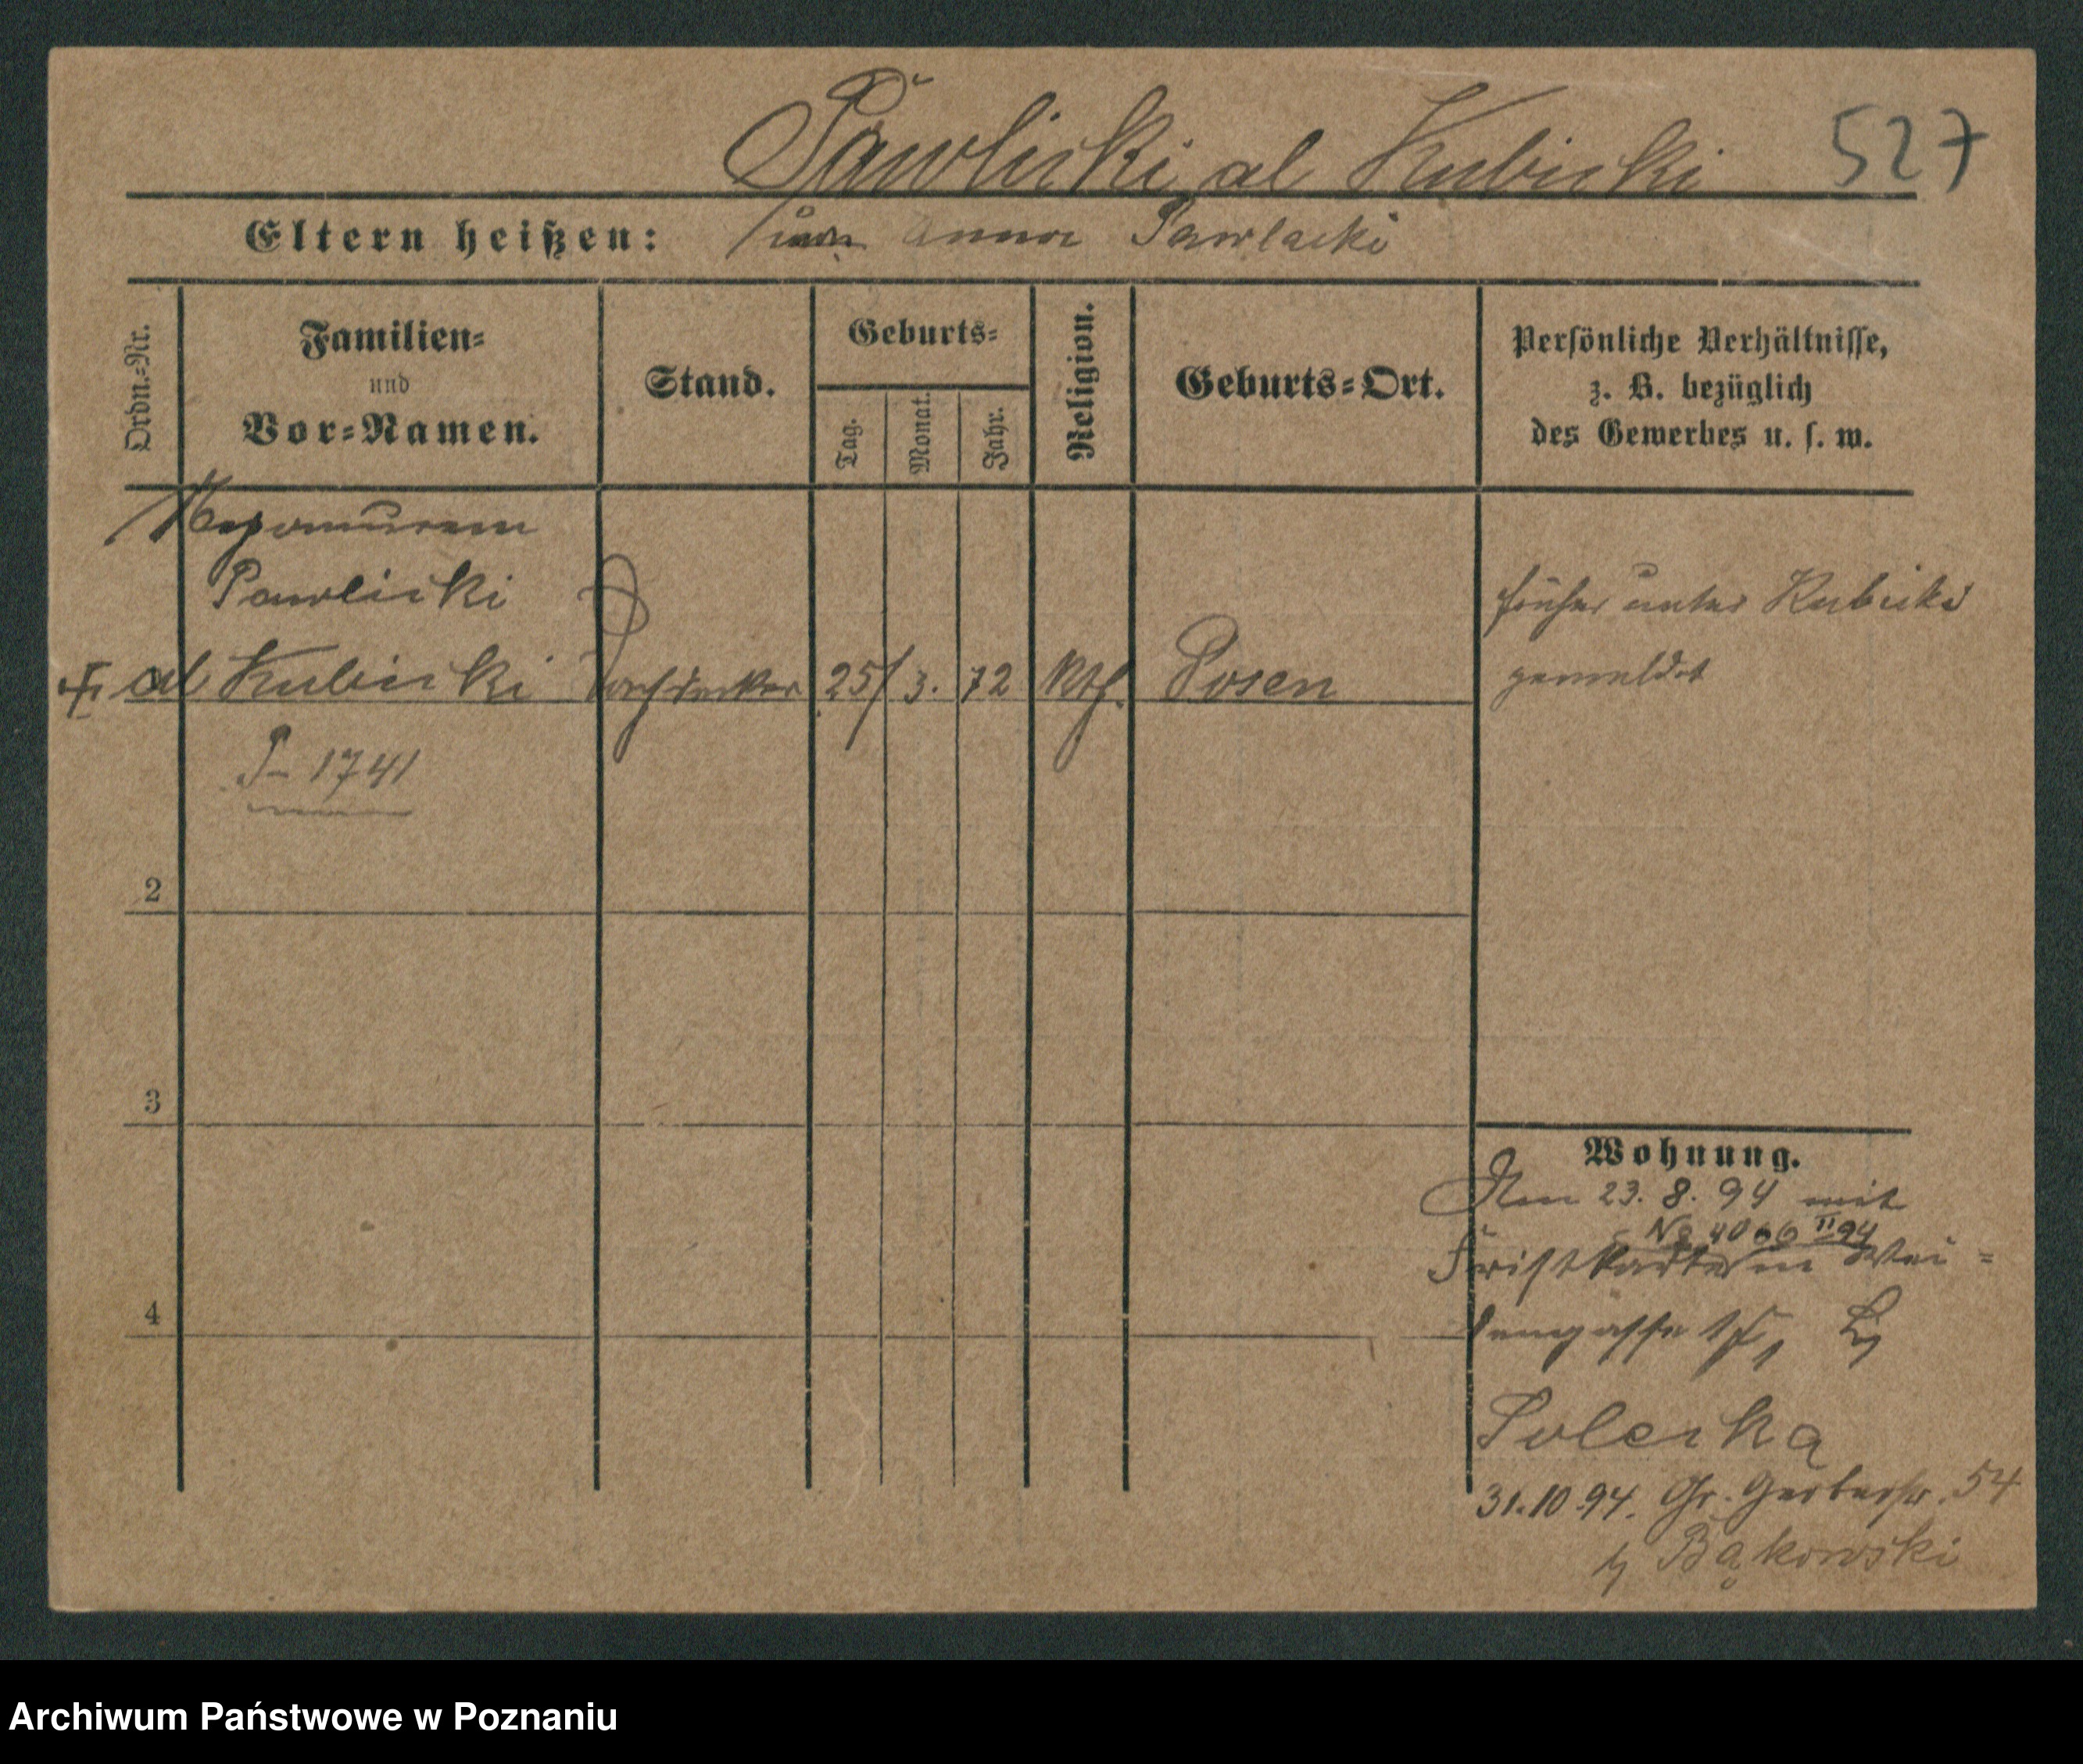 Pawlicki al Kubicki 527
Eltern heißen: Anna Pawlacki
Ordn.-Nr.
Familien-
und
Vor-Namen.
Stand.
Geburts-
Tag.
Monat.
Jahr.
Religion.
Geburts-Ort.
Persönliche Verhältnisse,
z. B. bezüglich
des Gewerbes u. s. w.
Pawlicki
al Kubicki Dachdecker 25/3. 72 kth. Posen
früher unter Kubicki
gemeldet
P- 1741
2
3
4
Wohnung.
Am 23. 8. 94 mit
No 4066 II 94
in Wei-
dengasse
Polcka
31.10.94. Gr. Gerberstr. 54
b/ Bąkowski
Archiwum Państwowe w Poznaniu